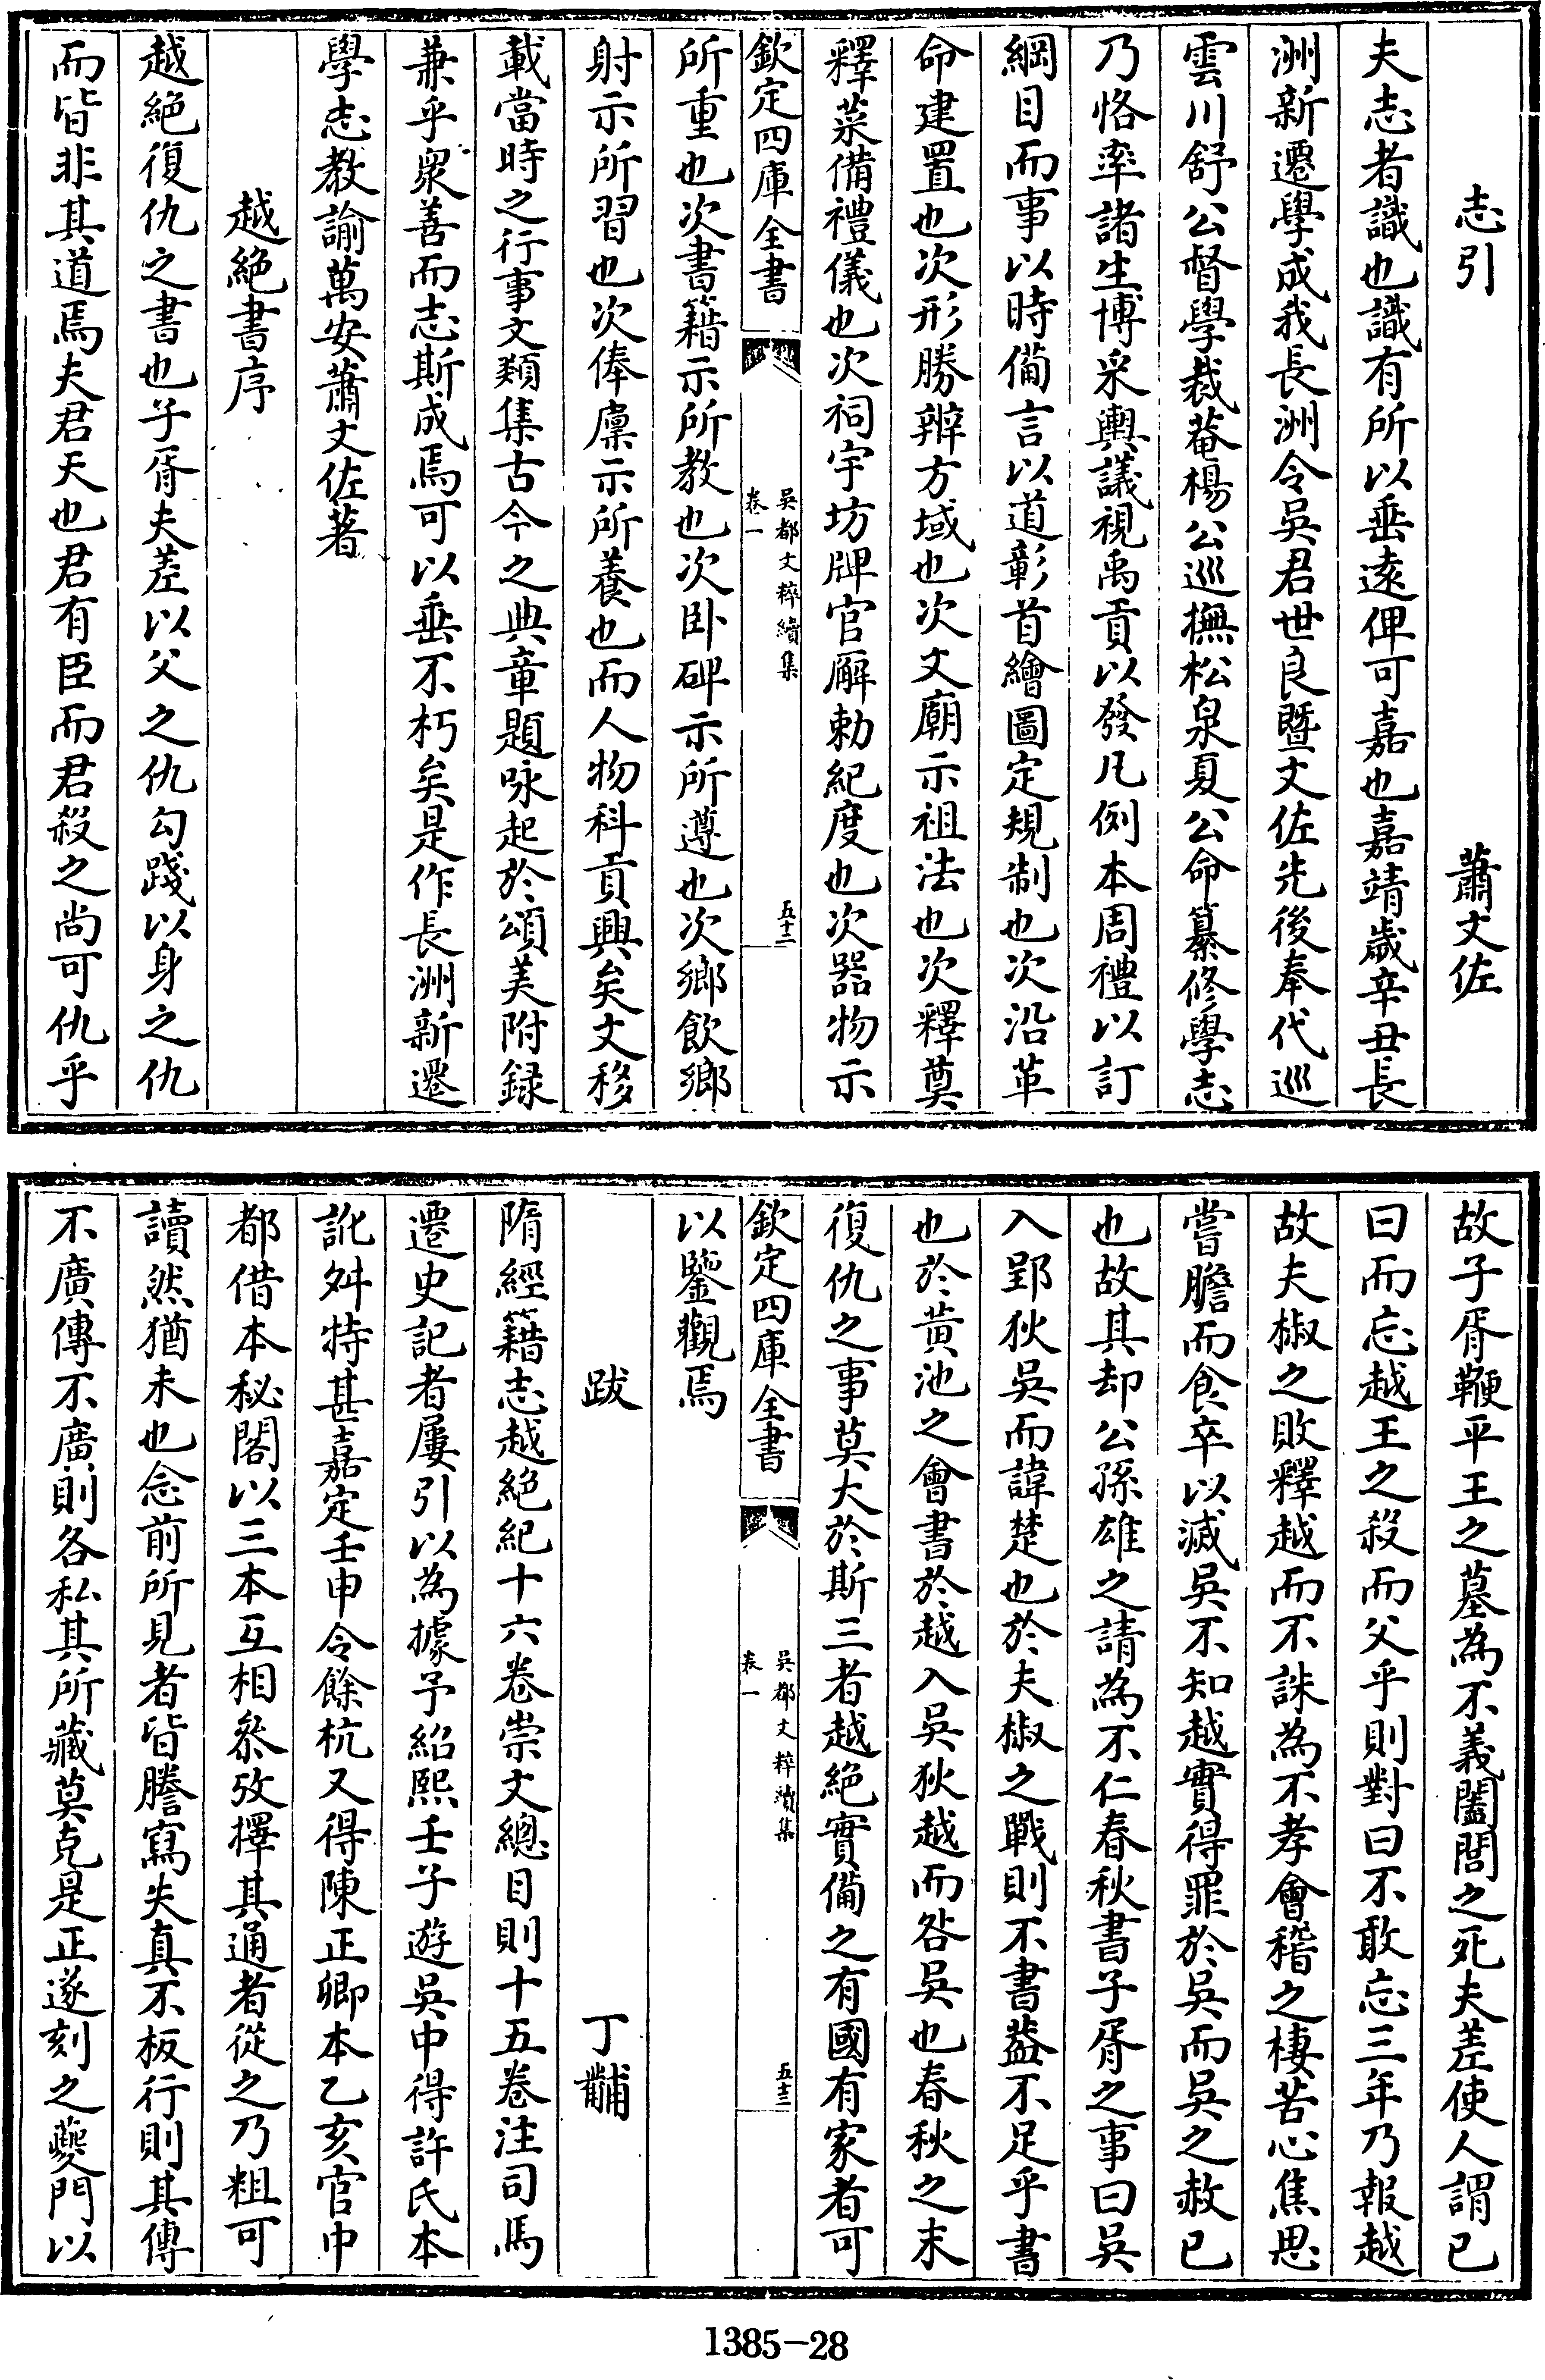 志引 蕭文佐
夫志者識也識有所以垂遠俾可嘉也嘉靖歲辛丑長
洲新遷學成我長洲令吳君世良暨文佐先後奉代巡
雲川舒公督學裁菴楊公巡撫松泉夏公命纂修學志
乃恪率諸生博采輿議視禹貢以發凡例本周禮以訂
綱目而事以時備言以道彰首繪圖定規制也次沿革
命建置也次形勝辨方域也次文廟示祖法也次釋奠
釋菜備禮儀也次祠宇坊牌官廨勅紀度也次器物示
欽定四庫全書 吳都文粹續集 卷一 五十二
所重也次書籍示所教也次卧碑示所遵也次鄉飲鄉
射示所習也次俸廩示所養也而人物科貢興矣文移
載當時之行事文類集古今之典章題咏起於頌美附録
兼乎衆善而志斯成焉可以垂不朽矣是作長洲新遷
學志教諭萬安蕭文佐著
越絶書序
越絶復仇之書也子胥夫差以父之仇勾踐以身之仇
而皆非其道焉夫君天也君有臣而君殺之尚可仇乎
故子胥鞭平王之墓為不義闔閭之死夫差使人謂已
曰而忘越王之殺而父乎則對曰不敢忘三年乃報越
故夫椒之敗釋越而不誅為不孝會稽之棲苦心焦思
嘗膽而食卒以滅吳不知越實得罪於吳而吳之赦已
也故其却公孫雄之請為不仁春秋書子胥之事曰吳
入郢狄吳而諱楚也於夫椒之戰則不書葢不足乎書
也於黄池之會書於越入吳狄越而咎吳也春秋之末
復仇之事莫大於斯三者越絶實備之有國有家者可
欽定四庫全書 吳都文粹續集 卷一 五十三
以鑒觀焉
跋 丁黼
隋經籍志越絶紀十六卷崇文總目則十五卷注司馬
遷史記者屢引以為據予紹熙壬子遊吳中得許氏本
訛舛特甚嘉定壬申令餘杭又得陳正卿本乙亥官中
都借本秘閣以三本互相叅攷擇其通者從之乃粗可
讀然猶未也念前所見者皆謄寫失真不板行則其傳
不廣傳不廣則各私其所藏莫克是正遂刻之夔門以
1385-28